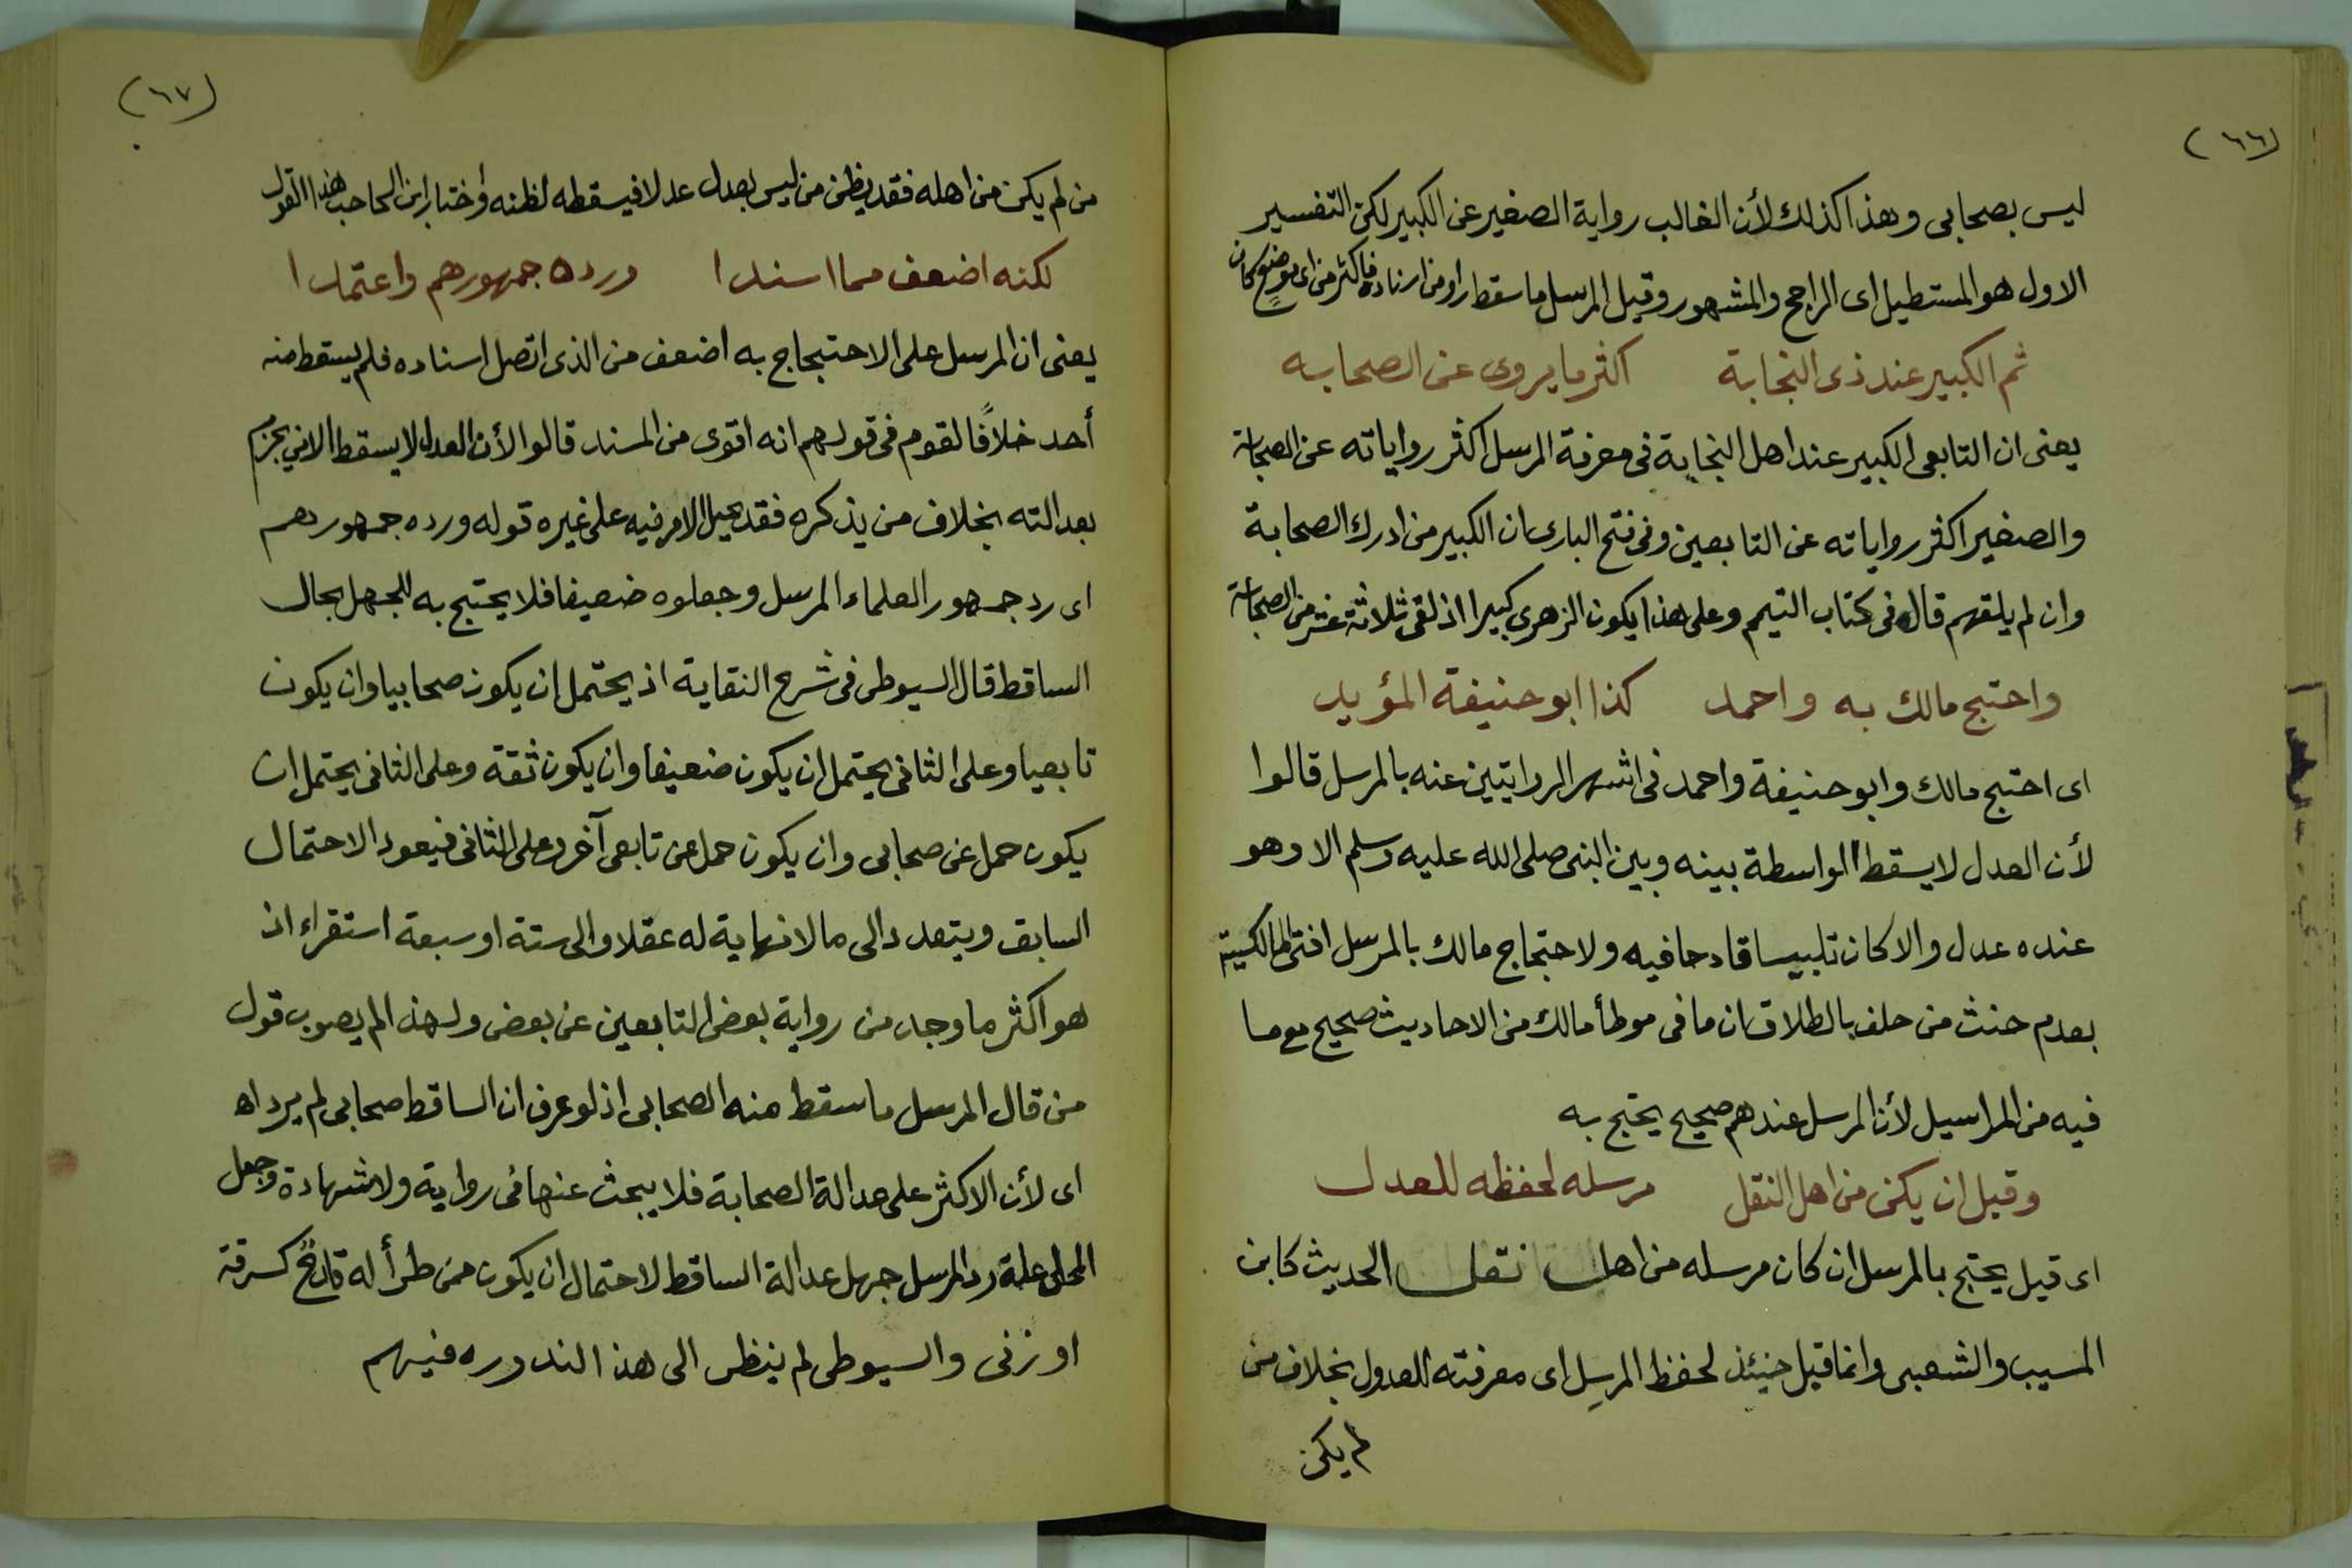 (٦٦)
ليس بصحابى وهذا كذلك لأن الغالب رواية الصغير عن الكبير لكن التفسير
الاول هو المستطيل اى الراجح والمشهور وقيل المرسل ما سقط راو من اسناده فاكثر من اى موضع كان
ثم الكبير عند ذى النجابة اكثر ما يروى عن الصحابه
يعنى ان التابعى الكبير عند اهل النجابة فى معرفة المرسل اكثر رواياته عن الصحابة
والصغير اكثر رواياته عن التابعين وفى فتح البارى ان الكبير من ادرك الصحابة
وان لم يلقهم قاله فى كتاب التيمم وعلى هذا يكون الزهرى كبيرا اذ لقى ثلاثة عشر من الصحابة
واحتج مالك به واحمد كذا ابو حنيفة المؤيد
اى احتج مالك وابو حنيفة واحمد فى اشهر الروايتين عنه بالمرسل قالوا
لأن العدل لا يسقط الواسطة بينه وبين النبى صلى الله عليه وسلم الا وهو
عنده عدل والا كان تلبيسا قادحا فيه ولاحتجاج مالك بالمرسل افتى المالكية
بعدم حنث من حلف بالطلاق ان ما فى موطأ مالك من الاحاديث صحيح مع ما
فيه من المراسيل لأن المرسل عندهم صحيح يحتج به
وقيل ان يكن من اهل النقل مرسله لحفظه للعدل
اى قيل يحتج بالمرسل ان كان مرسله من اهل نقل الحديث كابن
المسيب والشعبى وانما قبل حينئذ لحفظ المرسِل اى معرفته للعدول بخلاف من
لم يكن
(٦٧)
من لم يكن من اهله فقد يظن من ليس بعدل عدلا فيسقطه لظنه واختار ابن الحاجب هذا القول
لكنه اضعف مما اسندا ورده جمهورهم واعتمدا
يعنى ان المرسل على الاحتجاج به اضعف من الذى اتصل اسناده فلم يسقط منه
أحد خلافًا لقوم فى قولهم انه اقوى من المسند قالوا لأن العدل لا يسقط الا من يجزم
بعدالته بخلاف من يذكره فقد يحيل الامر فيه على غيره قوله ورده جمهورهم
اى رد جمهور العلماء المرسل وجعلوه ضعيفا فلا يحتج به للجهل بحال
الساقط قال السيوطى فى شرح النقاية اذ يحتمل ان يكون صحابيا وان يكون
تابعيا وعلى الثانى يحتمل ان يكون ضعيفا وان يكون ثقة وعلى الثانى يحتمل ان
يكون حمل عن صحابى وان يكون حمل عن تابعى آخر وعلى الثانى فيعود الاحتمال
السابق ويتعدد الى ما لا نهاية له عقلا والى ستة او سبعة استقراء اذ
هو اكثر ما وجد من رواية بعض التابعين عن بعض ولهذا لم يصوب قول
من قال المرسل ما سقط منه الصحابى اذ لو عرف ان الساقط صحابى لم يرد اه
اى لأن الاكثر على عدالة الصحابة فلا يبحث عنها فى رواية ولا شهادة وجعل
المحلى علة رد المرسل جهل عدالة الساقط لاحتمال ان يكون ممن طرأ له قادح كسرقة
او زنى والسيوطى لم ينظر الى هذا لندوره فيهم